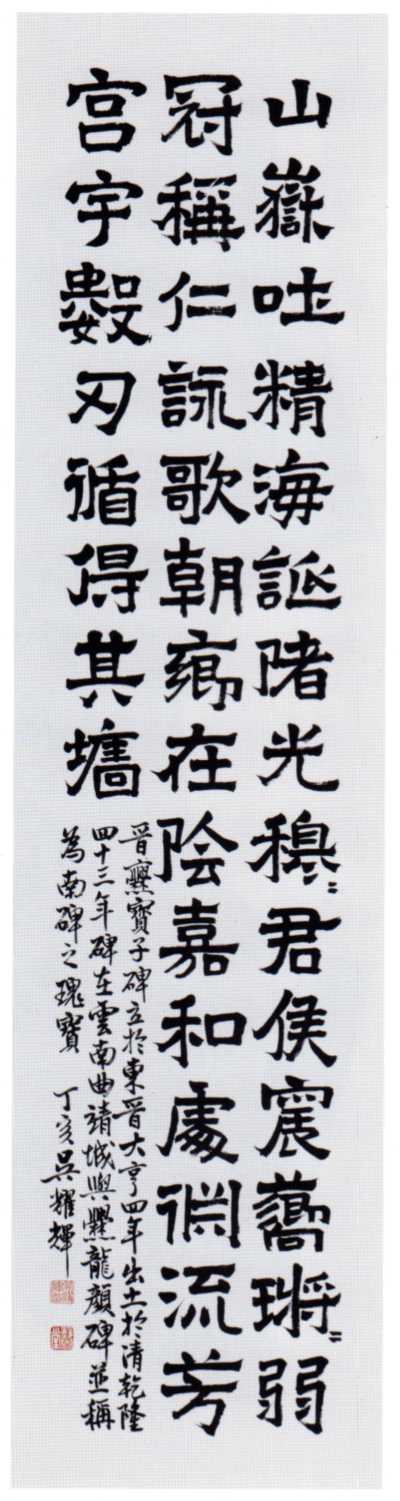 山嶽吐精海誕陼光穆〻君侯震嚮鏘〻弱
冠稱仁詠歌朝鄉在陰嘉和處淵流芳
宮宇數刃循得其墻
晉爨寶子碑立於東晉大亨四年出土於清乾隆
四十三年碑在雲南曲靖城與爨龍顏碑並稱
為南碑之瑰寶 丁亥吳耀輝